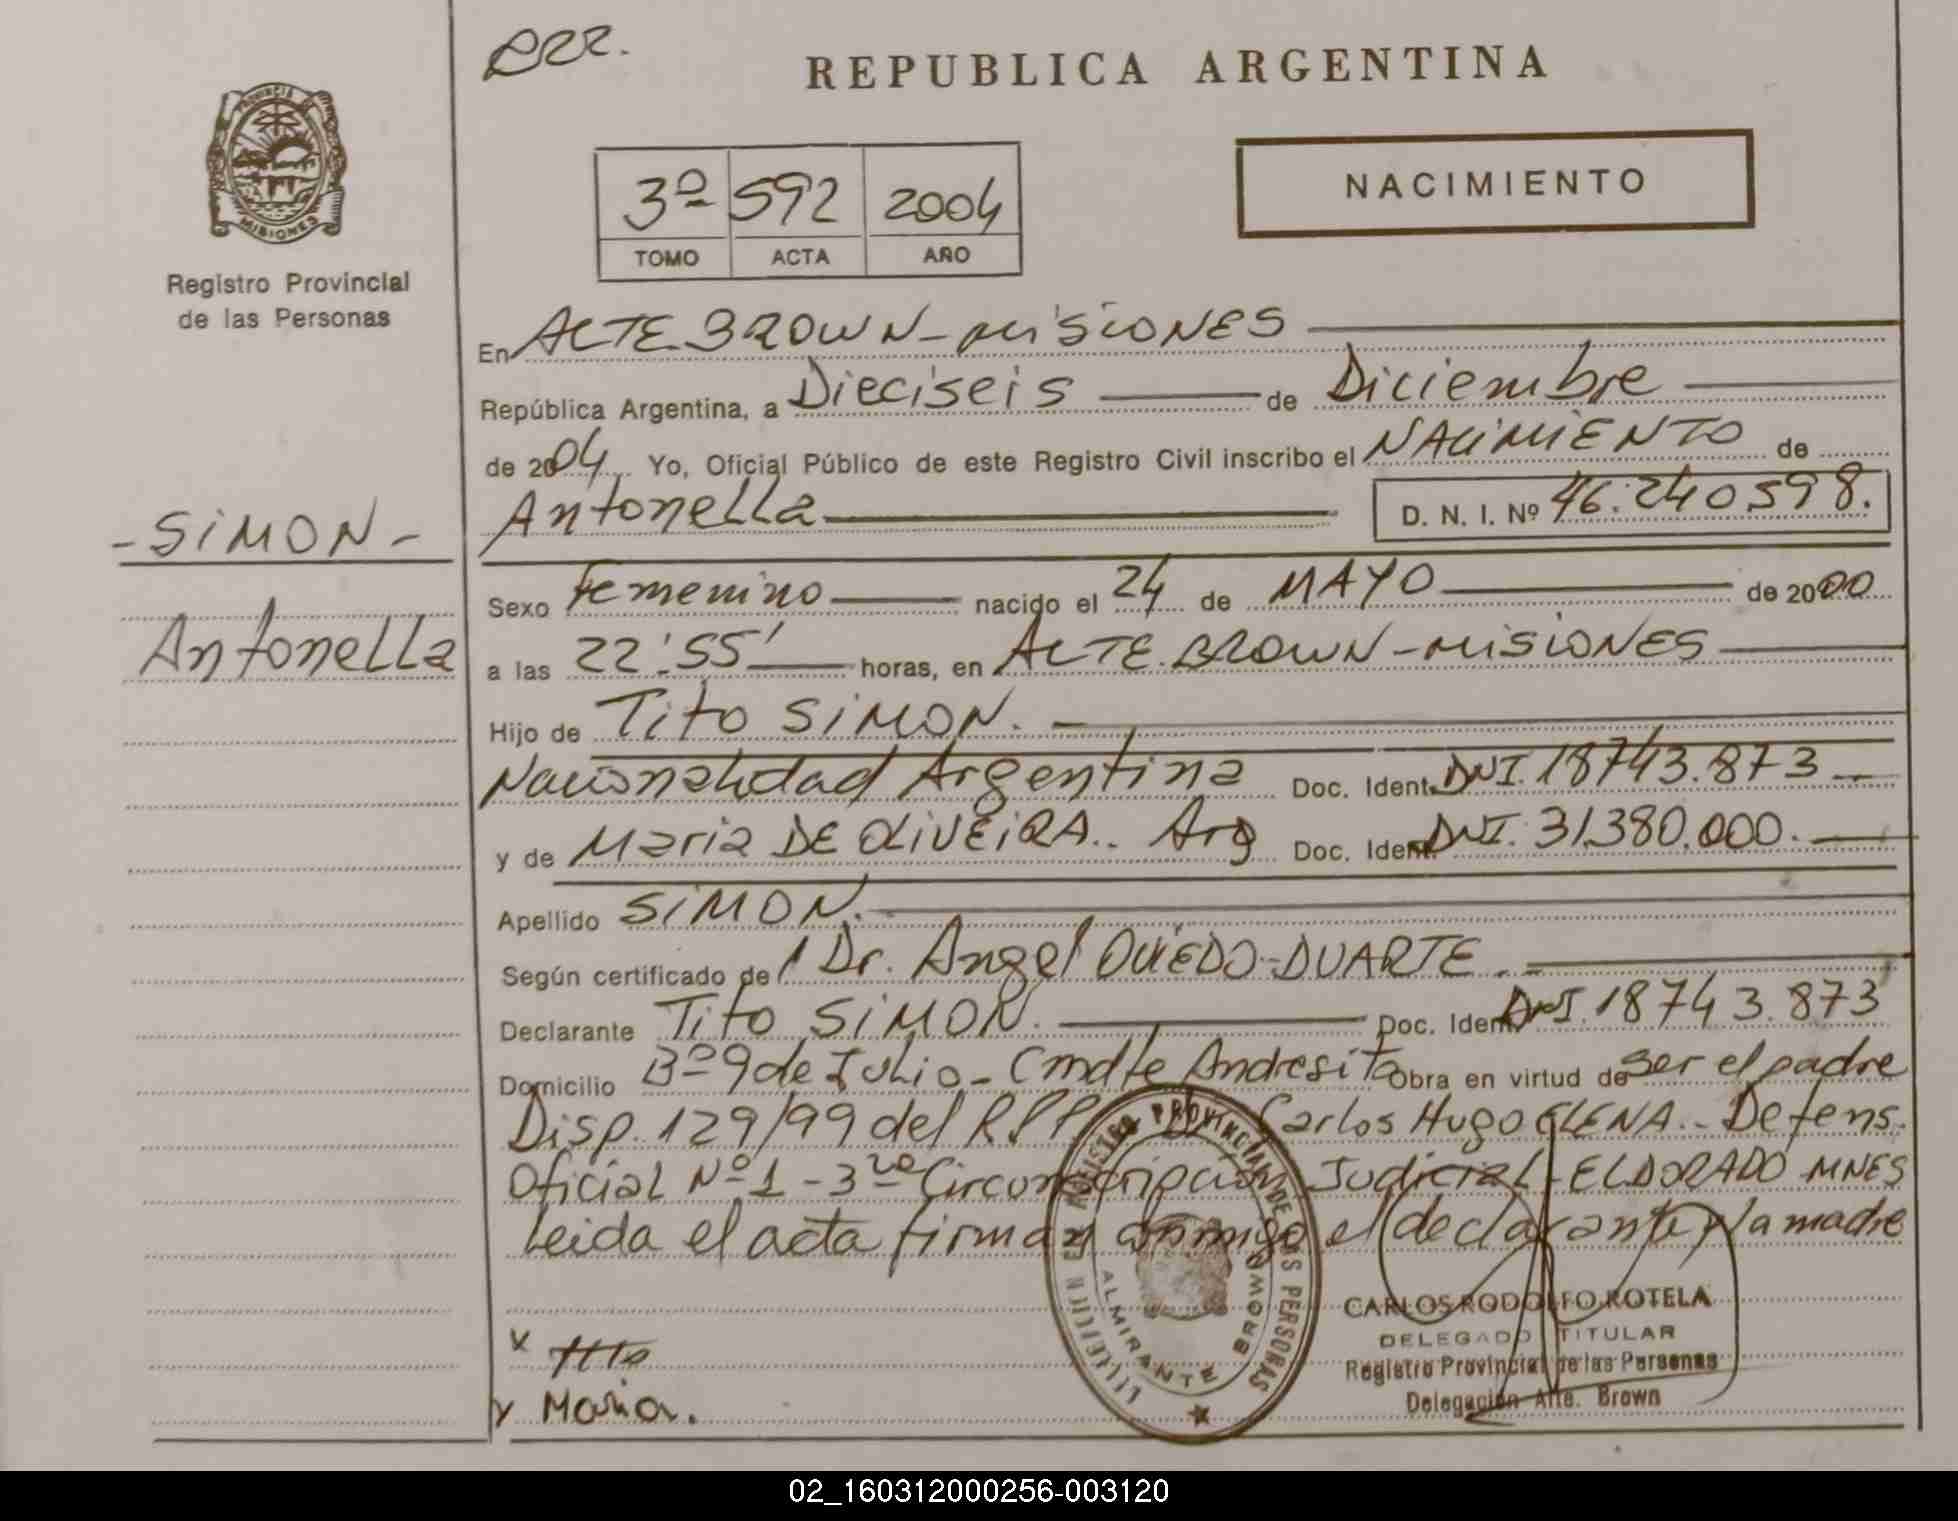 RZZ.
REPUBLICA ARGENTINA
PROVINCIA DE
MISIONES
Registro Provincial
de las Personas
3º 592 2004
TOMO ACTA AÑO
NACIMIENTO
En ALTE BROWN - MISIONES
República Argentina, a Dieciseis de Diciembre
de 2004 Yo, Oficial Público de este Registro Civil inscribo el NACIMIENTO de
Antonella D. N. I. Nº 46.240598.
- SIMON -
Antonella
Sexo Femenino nacido el 24 de MAYO de 2000
a las 22'.55' horas, en ALTE. BROWN - MISIONES
Hijo de Tito SIMON.
Nacionalidad Argentina Doc. Ident. DNI. 18743.873
y de Maria DE OLIVEIRA.. Arg Doc. Ident. DNI. 31380.000.
Apellido SIMON.
Según certificado del Dr. Angel OVIEDO-DUARTE.
Declarante Tito SIMON. Doc. Ident. DNI. 18743.873
Domicilio Bº 9 de Julio - Cmdte Andresito Obra en virtud de ser el padre
Disp. 129/99 del RPP Carlos Hugo ELENA.- Defens.
Oficial Nº 1 - 3ra Circunscripción Judicial - ELDORADO MNES
Leida el acta firman conmigo el declarante y la madre
REGISTRO PROVINCIAL DE LAS PERSONAS
ALMIRANTE BROWN
x Tito
x Maria.
CARLOS RODOLFO ROTELA
DELEGADO TITULAR
Registro Provincial de las Personas
Delegación Alte. Brown
02_160312000256-003120